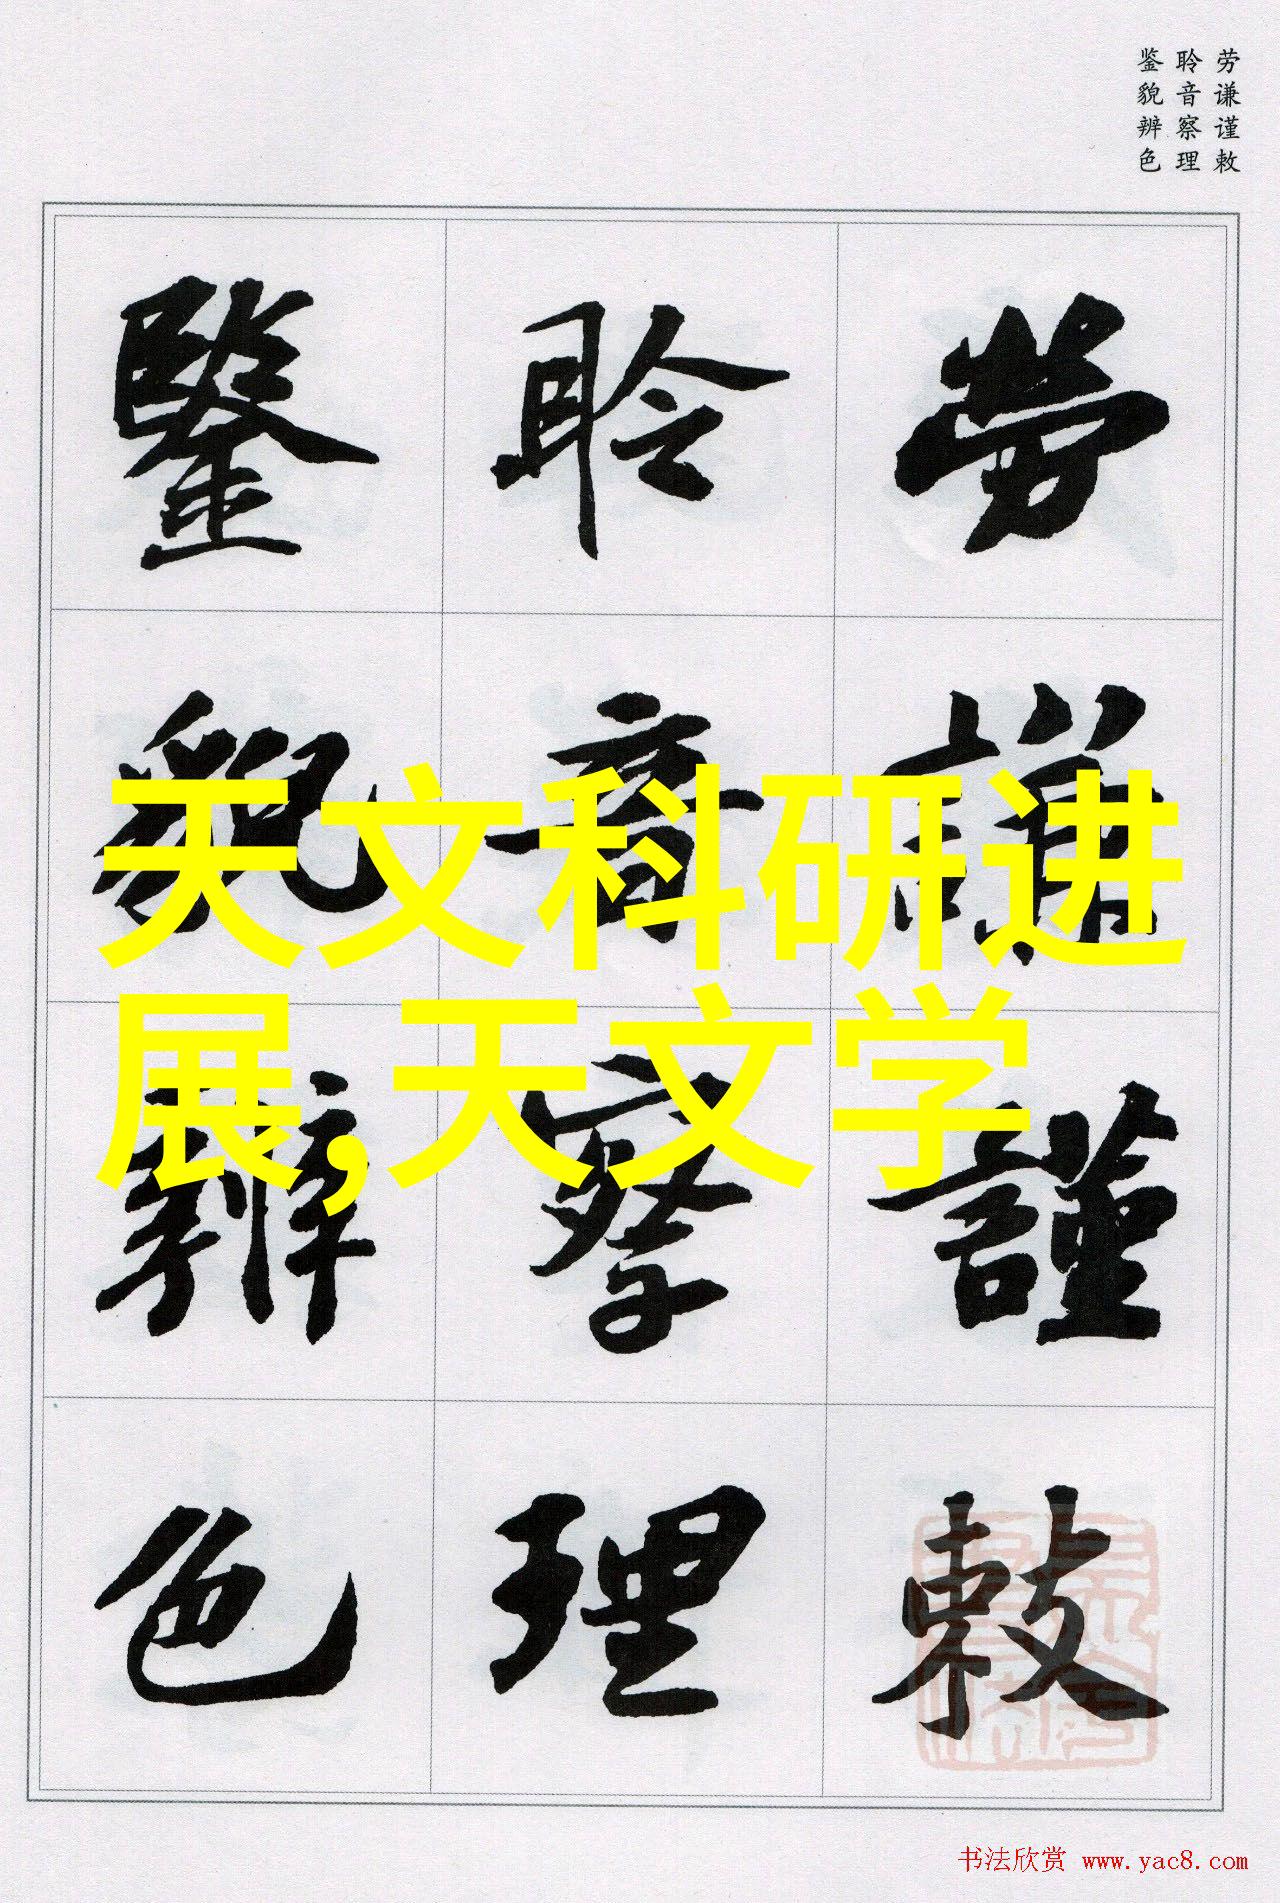 劳谦谨敕
聆音察理
鉴貌辨色
勞謙謹敕
聆音察理
鑒貌辨色
天文科研进
展,天文学
书法欣赏 www.yac8.com